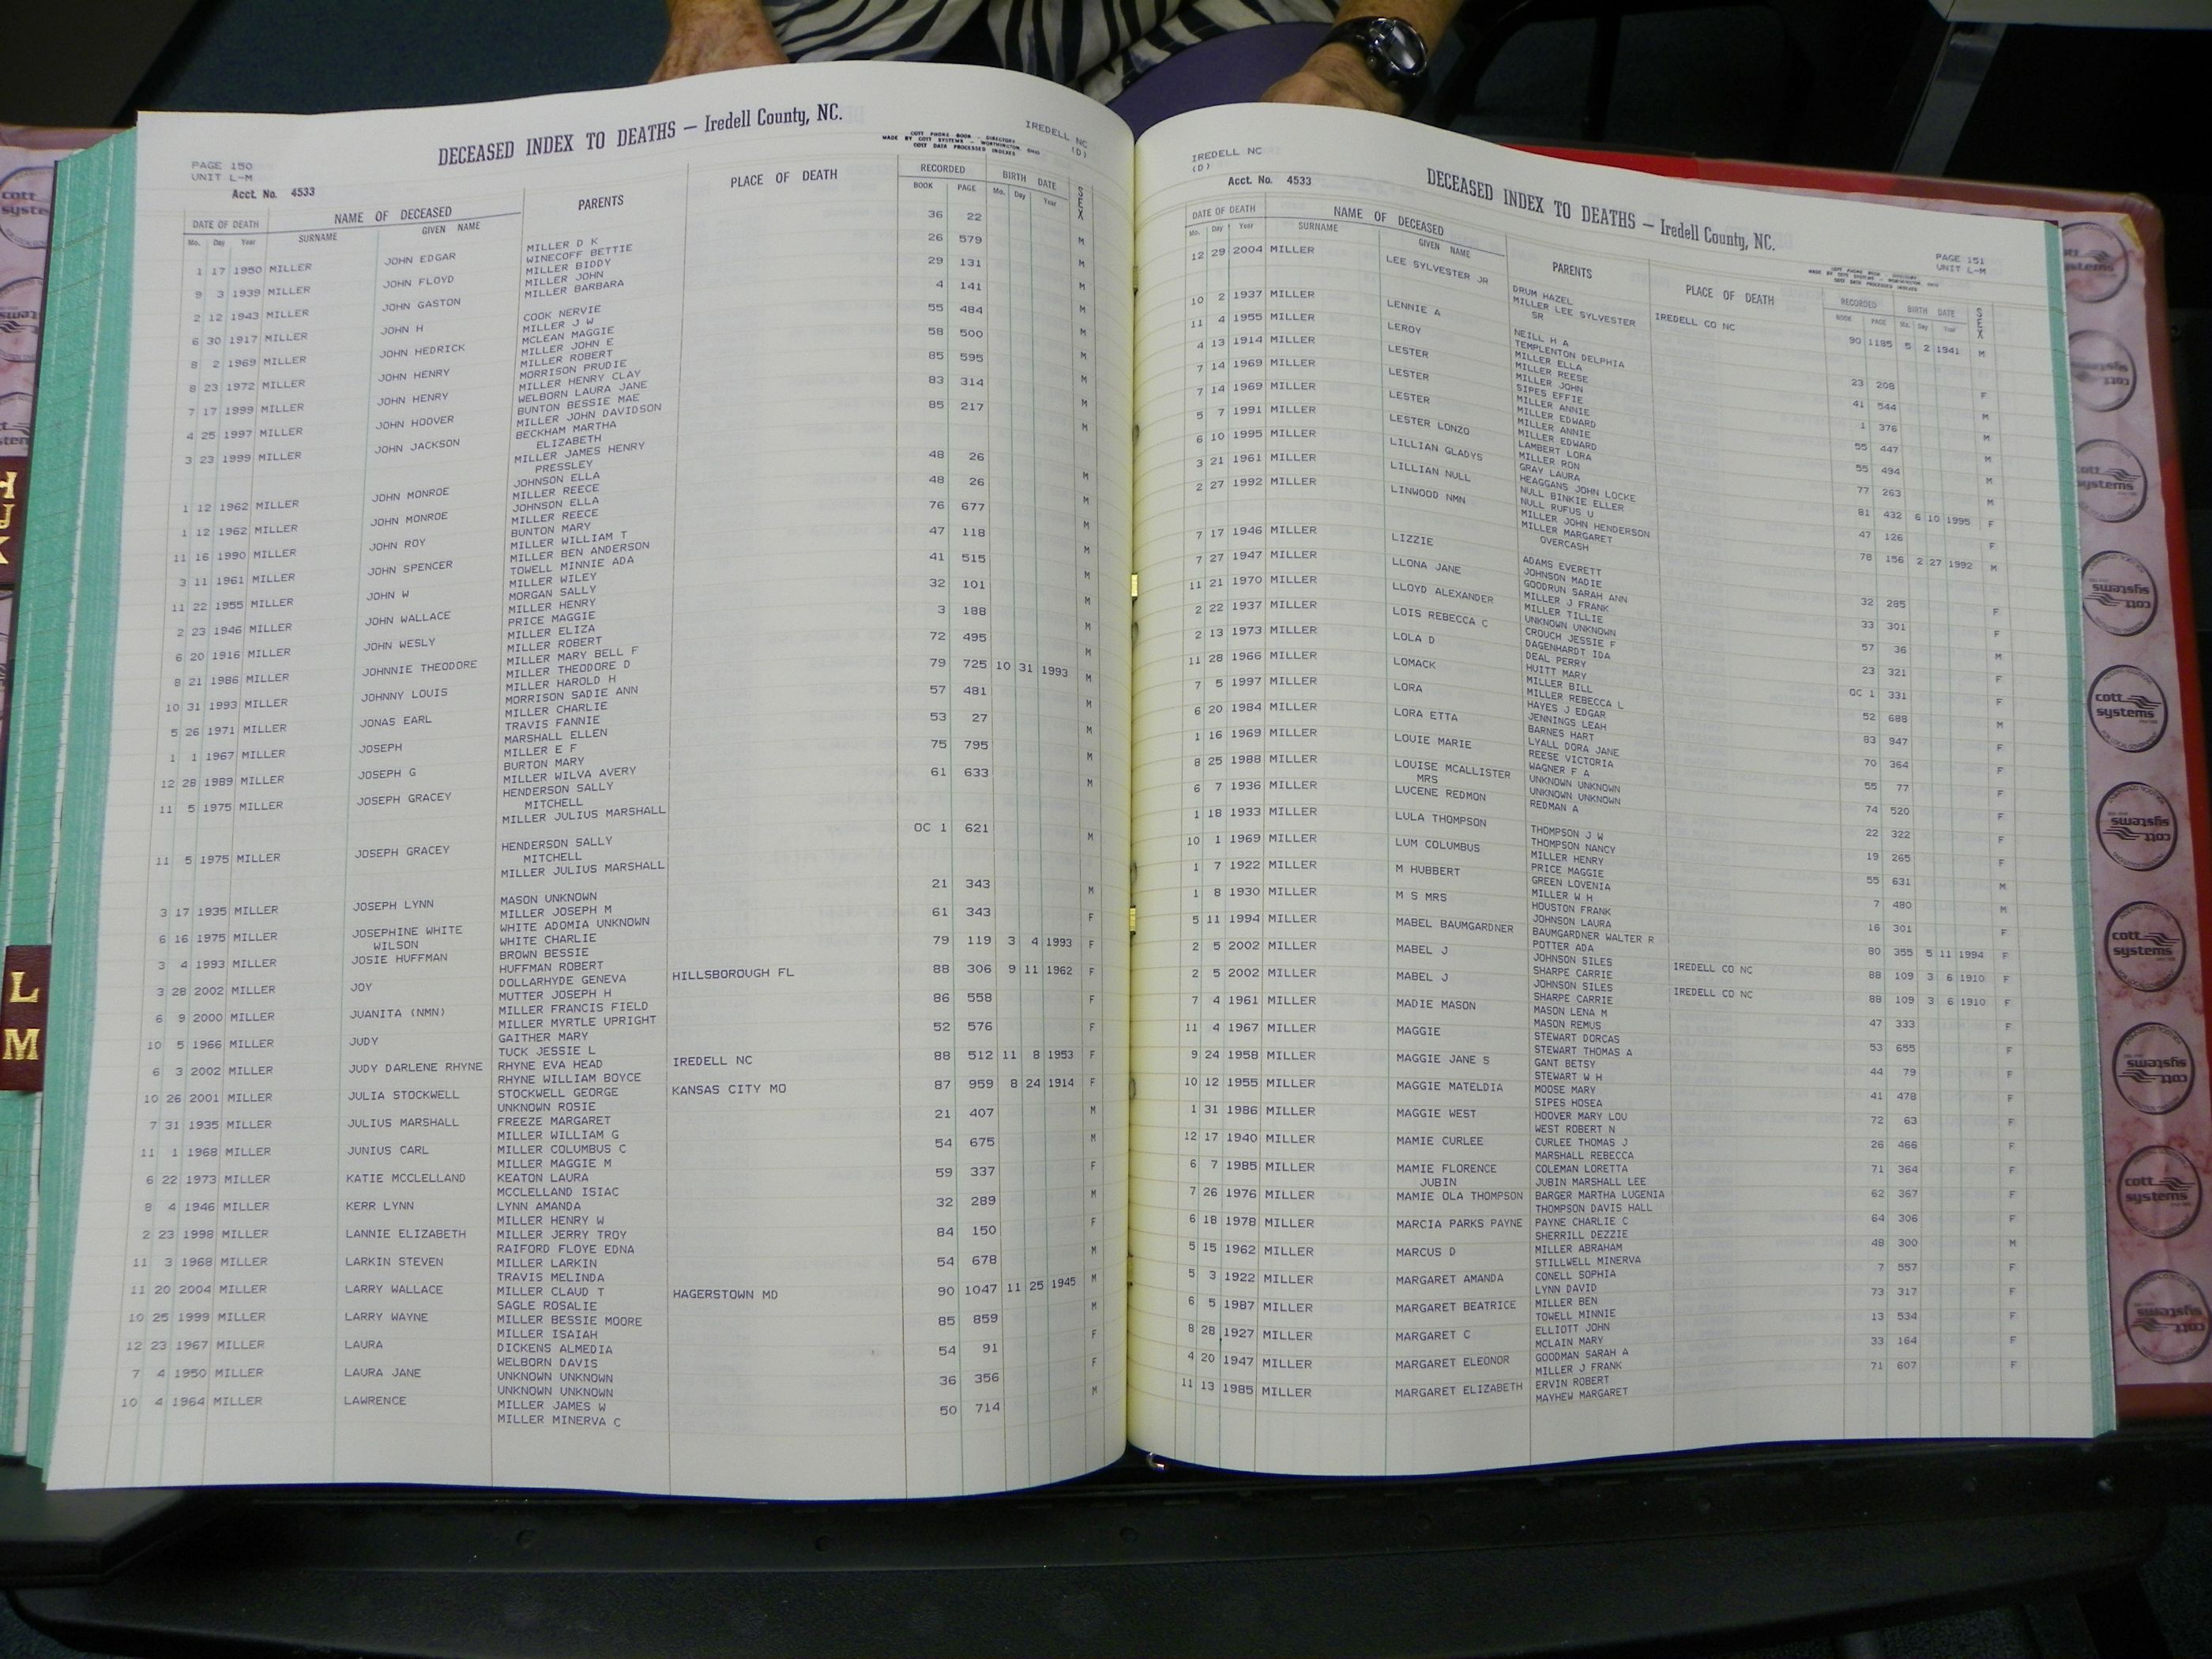 PAGE 150
UNIT L-M
DECEASED INDEX TO DEATHS — Iredell County, NC.
COTT PHONE BOOK - DIRECTORY
MADE BY COTT SYSTEMS - WORTHINGTON, OHIO
COTT DATA PROCESSED INDEXES
IREDELL NC
(D)
Acct. No. 4533
DATE OF DEATH NAME OF DECEASED PARENTS PLACE OF DEATH RECORDED BIRTH DATE SEX
Mo. Day Year SURNAME GIVEN NAME BOOK PAGE Mo. Day Year
1 17 1950 MILLER JOHN EDGAR MILLER D K 36 22 M
WINECOFF BETTIE
9 3 1939 MILLER JOHN FLOYD MILLER BIDDY 26 579 M
MILLER JOHN
2 12 1943 MILLER JOHN GASTON MILLER BARBARA 29 131 M
6 30 1917 MILLER JOHN H COOK NERVIE 4 141 M
MILLER J W
8 2 1969 MILLER JOHN HEDRICK MCLEAN MAGGIE 55 484 M
MILLER JOHN E
8 23 1972 MILLER JOHN HENRY MILLER ROBERT 58 500 M
MORRISON PRUDIE
7 17 1999 MILLER JOHN HENRY MILLER HENRY CLAY 85 595 M
WELBORN LAURA JANE
4 25 1997 MILLER JOHN HOOVER BUNTON BESSIE MAE 83 314 M
MILLER JOHN DAVIDSON
3 23 1999 MILLER JOHN JACKSON BECKHAM MARTHA 85 217 M
ELIZABETH
MILLER JAMES HENRY
PRESSLEY
1 12 1962 MILLER JOHN MONROE JOHNSON ELLA 48 26 M
MILLER REECE
1 12 1962 MILLER JOHN MONROE JOHNSON ELLA 48 26 M
MILLER REECE
11 16 1990 MILLER JOHN ROY BUNTON MARY 76 677 M
MILLER WILLIAM T
3 11 1961 MILLER JOHN SPENCER MILLER BEN ANDERSON 47 118 M
TOWELL MINNIE ADA
11 22 1955 MILLER JOHN W MILLER WILEY 41 515 M
MORGAN SALLY
2 23 1946 MILLER JOHN WALLACE MILLER HENRY 32 101 M
PRICE MAGGIE
6 20 1916 MILLER JOHN WESLY MILLER ELIZA 3 188 M
MILLER ROBERT
8 21 1986 MILLER JOHNNIE THEODORE MILLER MARY BELL F 72 495 M
MILLER THEODORE D
10 31 1993 MILLER JOHNNY LOUIS MILLER HAROLD H 79 725 10 31 1993 M
MORRISON SADIE ANN
5 26 1971 MILLER JONAS EARL MILLER CHARLIE 57 481 M
TRAVIS FANNIE
1 1 1967 MILLER JOSEPH MARSHALL ELLEN 53 27 M
MILLER E F
12 28 1989 MILLER JOSEPH G BURTON MARY 75 795 M
MILLER WILVA AVERY
11 5 1975 MILLER JOSEPH GRACEY HENDERSON SALLY 61 633 M
MITCHELL
MILLER JULIUS MARSHALL
11 5 1975 MILLER JOSEPH GRACEY HENDERSON SALLY OC 1 621 M
MITCHELL
MILLER JULIUS MARSHALL
3 17 1935 MILLER JOSEPH LYNN MASON UNKNOWN 21 343 M
MILLER JOSEPH M
6 16 1975 MILLER JOSEPHINE WHITE WHITE ADOMIA UNKNOWN 61 343 F
WILSON WHITE CHARLIE
3 4 1993 MILLER JOSIE HUFFMAN BROWN BESSIE 79 119 3 4 1993 F
HUFFMAN ROBERT
3 28 2002 MILLER JOY DOLLARHYDE GENEVA HILLSBOROUGH FL 88 306 9 11 1962 F
MUTTER JOSEPH H
6 9 2000 MILLER JUANITA (NMN) MILLER FRANCIS FIELD 86 558 F
MILLER MYRTLE UPRIGHT
10 5 1966 MILLER JUDY GAITHER MARY 52 576 F
TUCK JESSIE L
6 3 2002 MILLER JUDY DARLENE RHYNE RHYNE EVA HEAD IREDELL NC 88 512 11 8 1953 F
RHYNE WILLIAM BOYCE
10 26 2001 MILLER JULIA STOCKWELL STOCKWELL GEORGE KANSAS CITY MO 87 959 8 24 1914 F
UNKNOWN ROSIE
7 31 1935 MILLER JULIUS MARSHALL FREEZE MARGARET 21 407 M
MILLER WILLIAM G
11 1 1968 MILLER JUNIUS CARL MILLER COLUMBUS C 54 675 M
MILLER MAGGIE M
6 22 1973 MILLER KATIE MCCLELLAND KEATON LAURA 59 337 F
MCCLELLAND ISIAC
8 4 1946 MILLER KERR LYNN LYNN AMANDA 32 289 M
MILLER HENRY W
2 23 1998 MILLER LANNIE ELIZABETH MILLER JERRY TROY 84 150 F
RAIFORD FLOYE EDNA
11 3 1968 MILLER LARKIN STEVEN MILLER LARKIN 54 678 M
TRAVIS MELINDA
11 20 2004 MILLER LARRY WALLACE MILLER CLAUD T HAGERSTOWN MD 90 1047 11 25 1945 M
SAGLE ROSALIE
10 25 1999 MILLER LARRY WAYNE MILLER BESSIE MOORE 85 859 M
MILLER ISAIAH
12 23 1967 MILLER LAURA DICKENS ALMEDIA 54 91 F
WELBORN DAVIS
7 4 1950 MILLER LAURA JANE UNKNOWN UNKNOWN 36 356 F
UNKNOWN UNKNOWN
10 4 1964 MILLER LAWRENCE MILLER JAMES W 50 714 M
MILLER MINERVA C
IREDELL NC
(D)
Acct. No. 4533
DECEASED INDEX TO DEATHS — Iredell County, NC.
PAGE 151
UNIT L-M
DATE OF DEATH NAME OF DECEASED PARENTS PLACE OF DEATH RECORDED BIRTH DATE SEX
Mo. Day Year SURNAME GIVEN NAME BOOK PAGE Mo. Day Year
12 29 2004 MILLER LEE SYLVESTER JR DRUM HAZEL IREDELL CO NC 90 1185 5 2 1941 M
MILLER LEE SYLVESTER
SR
10 2 1937 MILLER LENNIE A NEILL H A 23 208 F
TEMPLENTON DELPHIA
11 4 1955 MILLER LEROY MILLER ELLA 41 544 M
MILLER REESE
4 13 1914 MILLER LESTER MILLER JOHN 1 376 M
SIPES EFFIE
7 14 1969 MILLER LESTER MILLER ANNIE 55 447 M
MILLER EDWARD
7 14 1969 MILLER LESTER MILLER ANNIE 55 494 M
MILLER EDWARD
5 7 1991 MILLER LESTER LONZO LAMBERT LORA 77 263 M
MILLER RON
6 10 1995 MILLER LILLIAN GLADYS GRAY LAURA 81 432 6 10 1995 F
HEAGGANS JOHN LOCKE
3 21 1961 MILLER LILLIAN NULL NULL BINKIE ELLER 47 126 F
NULL RUFUS U
2 27 1992 MILLER LINWOOD NMN MILLER JOHN HENDERSON 78 156 2 27 1992 M
MILLER MARGARET
OVERCASH
7 17 1946 MILLER LIZZIE ADAMS EVERETT 32 285 F
JOHNSON MADIE
7 27 1947 MILLER LLONA JANE GOODRUN SARAH ANN 33 301 F
MILLER J FRANK
11 21 1970 MILLER LLOYD ALEXANDER MILLER TILLIE 57 36 M
UNKNOWN UNKNOWN
2 22 1937 MILLER LOIS REBECCA C CROUCH JESSIE F 23 321 F
DAGENHARDT IDA
2 13 1973 MILLER LOLA D DEAL PERRY OC 1 331 F
HUITT MARY
11 28 1966 MILLER LOMACK MILLER BILL 52 688 M
MILLER REBECCA L
7 5 1997 MILLER LORA HAYES J EDGAR 83 947 F
JENNINGS LEAH
6 20 1984 MILLER LORA ETTA BARNES HART 70 364 F
LYALL DORA JANE
1 16 1969 MILLER LOUIE MARIE REESE VICTORIA 55 77 F
WAGNER F A
8 25 1988 MILLER LOUISE MCALLISTER UNKNOWN UNKNOWN 74 520 F
MRS UNKNOWN UNKNOWN
6 7 1936 MILLER LUCENE REDMON REDMAN A 22 322 F
1 18 1933 MILLER LULA THOMPSON THOMPSON J W 19 265 F
THOMPSON NANCY
10 1 1969 MILLER LUM COLUMBUS MILLER HENRY 55 631 M
PRICE MAGGIE
1 7 1922 MILLER M HUBBERT GREEN LOVENIA 7 480 M
MILLER W H
1 8 1930 MILLER M S MRS HOUSTON FRANK 16 301 F
JOHNSON LAURA
5 11 1994 MILLER MABEL BAUMGARDNER BAUMGARDNER WALTER R 80 355 5 11 1994 F
POTTER ADA
2 5 2002 MILLER MABEL J JOHNSON SILES IREDELL CO NC 88 109 3 6 1910 F
SHARPE CARRIE
2 5 2002 MILLER MABEL J JOHNSON SILES IREDELL CO NC 88 109 3 6 1910 F
SHARPE CARRIE
7 4 1961 MILLER MADIE MASON MASON LENA M 47 333 F
MASON REMUS
11 4 1967 MILLER MAGGIE STEWART DORCAS 53 655 F
STEWART THOMAS A
9 24 1958 MILLER MAGGIE JANE S GANT BETSY 44 79 F
STEWART W H
10 12 1955 MILLER MAGGIE MATELDIA MOOSE MARY 41 478 F
SIPES HOSEA
1 31 1986 MILLER MAGGIE WEST HOOVER MARY LOU 72 63 F
WEST ROBERT N
12 17 1940 MILLER MAMIE CURLEE CURLEE THOMAS J 26 466 F
MARSHALL REBECCA
6 7 1985 MILLER MAMIE FLORENCE COLEMAN LORETTA 71 364 F
JUBIN JUBIN MARSHALL LEE
7 26 1976 MILLER MAMIE OLA THOMPSON BARGER MARTHA LUGENIA 62 367 F
THOMPSON DAVIS HALL
6 18 1978 MILLER MARCIA PARKS PAYNE PAYNE CHARLIE C 64 306 F
SHERRILL DEZZIE
5 15 1962 MILLER MARCUS D MILLER ABRAHAM 48 300 M
STILLWELL MINERVA
5 3 1922 MILLER MARGARET AMANDA CONELL SOPHIA 7 557 F
LYNN DAVID
6 5 1987 MILLER MARGARET BEATRICE MILLER BEN 73 317 F
TOWELL MINNIE
8 28 1927 MILLER MARGARET C ELLIOTT JOHN 13 534 F
MCLAIN MARY
4 20 1947 MILLER MARGARET ELEONOR GOODMAN SARAH A 33 164 F
MILLER J FRANK
11 13 1985 MILLER MARGARET ELIZABETH ERVIN ROBERT 71 607 F
MAYHEW MARGARET
L
M
cott
systems
cott
systems
cott
systems